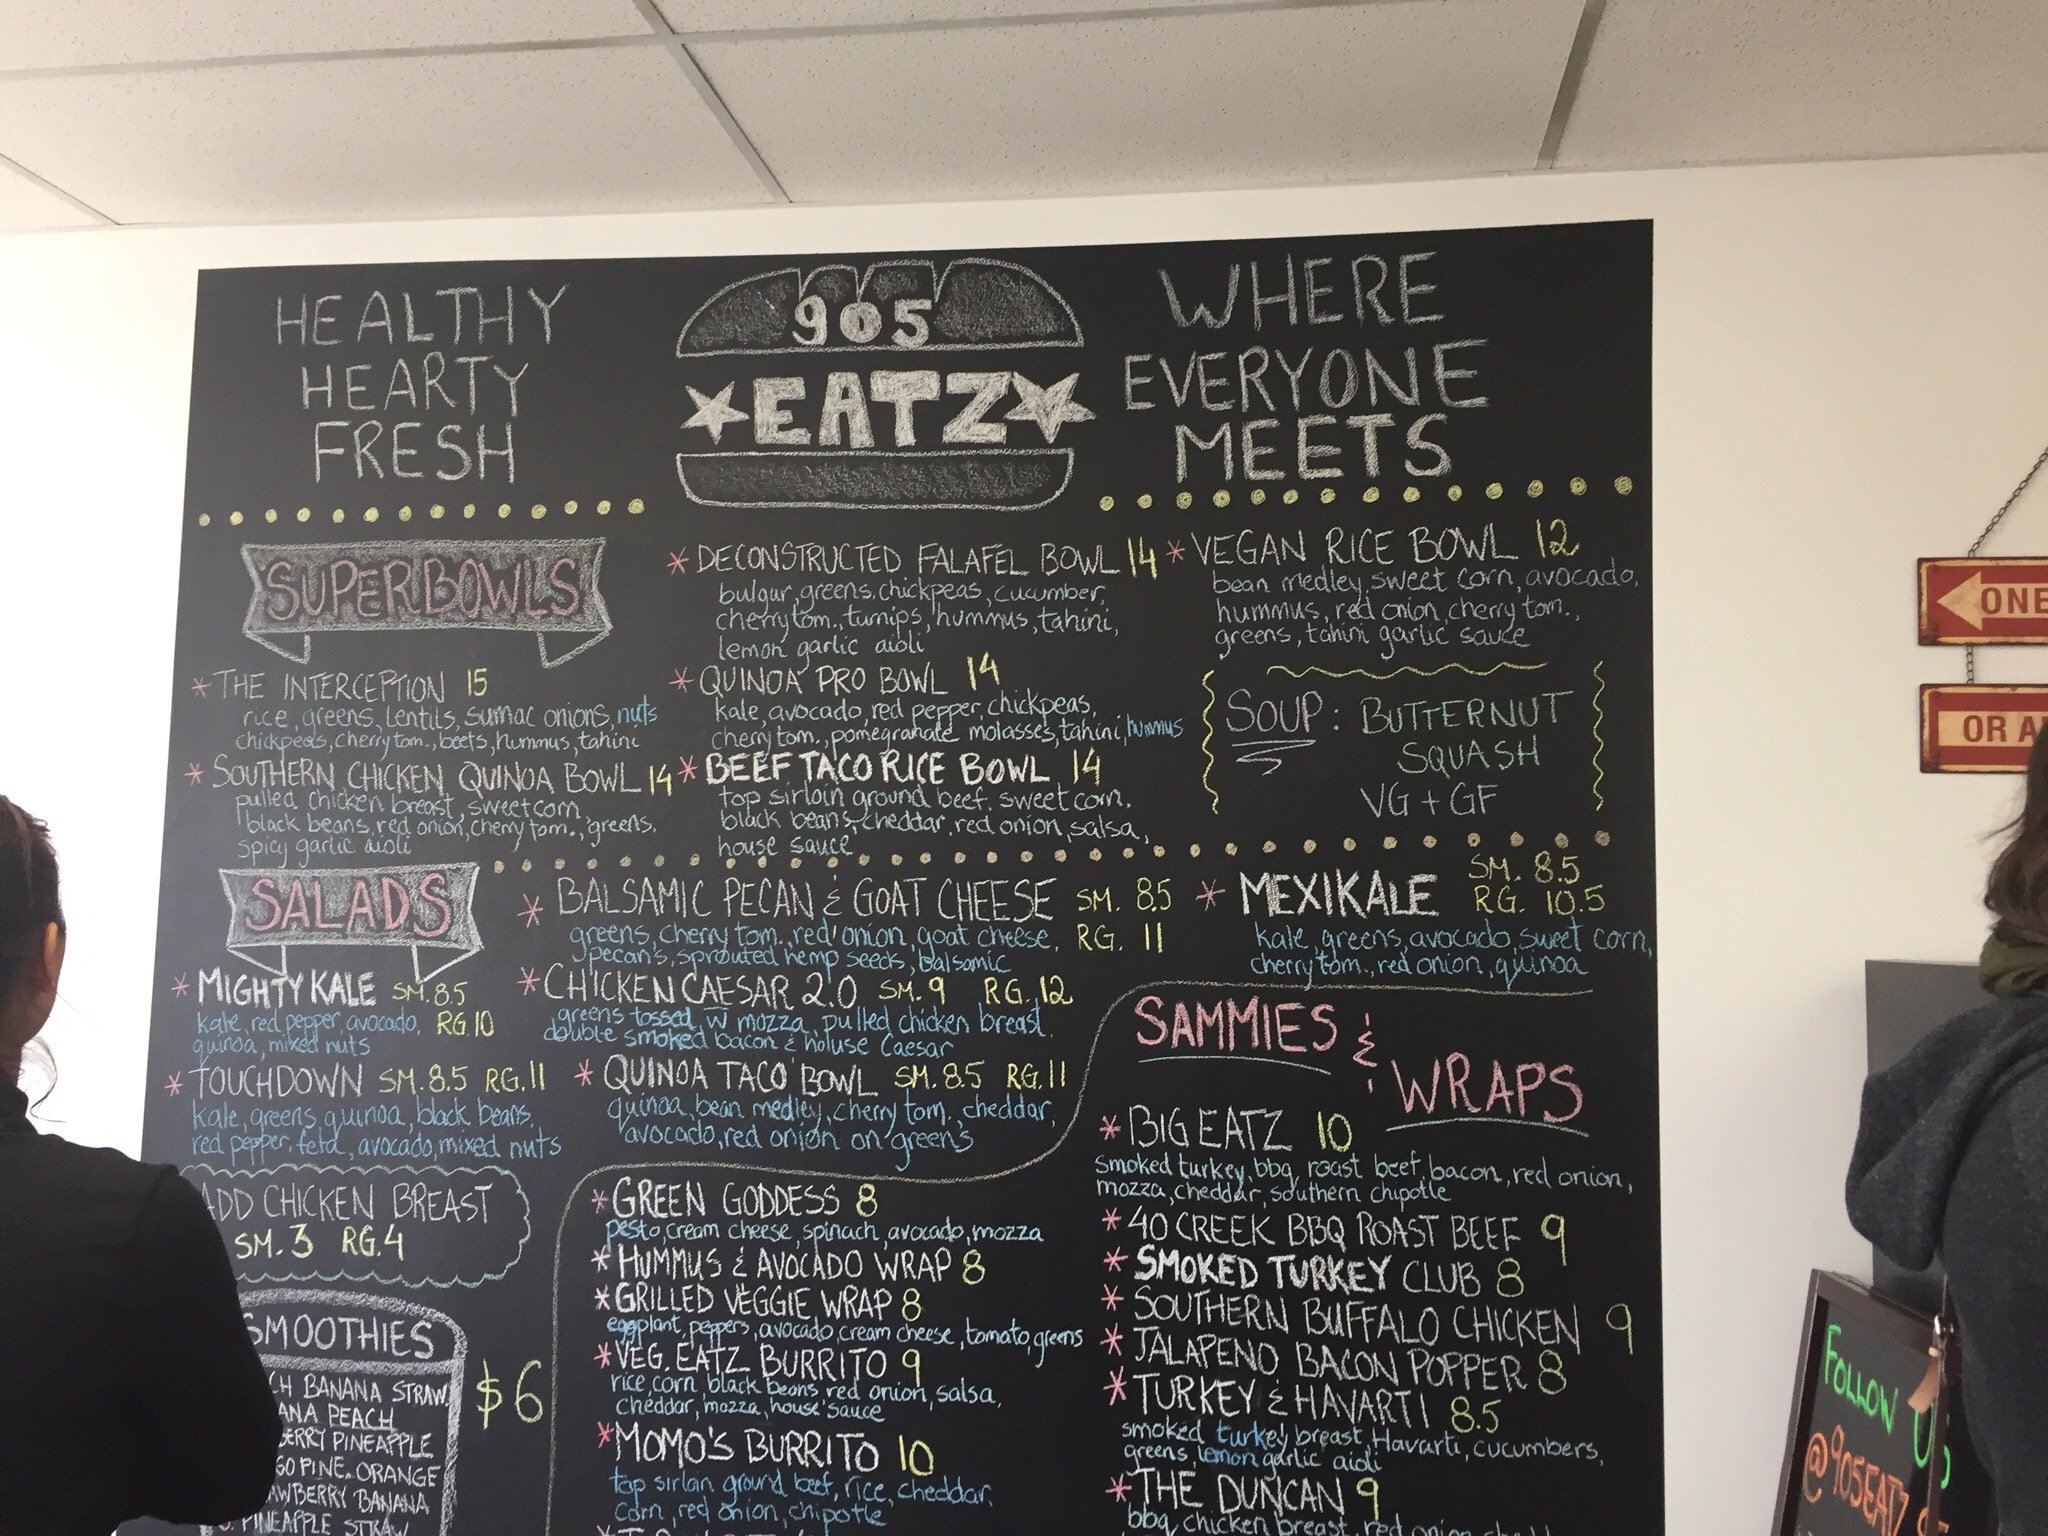 HEALTHY
HEARTY
FRESH
905
EATZ
WHERE
EVERYONE
MEETS
SUPERBOWLS
* THE INTERCEPTION 15
rice, greens, lentils, sumac onions, nuts
chickpeas, cherry tom., beets, hummus, tahini
* SOUTHERN CHICKEN QUINOA BOWL 14
pulled chicken breast, sweet corn,
black beans, red onion, cherry tom., greens,
spicy garlic aioli
* DECONSTRUCTED FALAFEL BOWL 14
bulgur, greens, chickpeas, cucumber,
cherry tom., turnips, hummus, tahini,
lemon garlic aioli
* QUINOA PRO BOWL 14
kale, avocado, red pepper, chickpeas,
cherry tom., pomegranate molasses, tahini, hummus
* BEEF TACO RICE BOWL 14
top sirloin ground beef, sweet corn,
black beans, cheddar, red onion, salsa,
house sauce
* VEGAN RICE BOWL 12
bean medley, sweet corn, avocado,
hummus, red onion, cherry tom.,
greens, tahini garlic sauce
SOUP: BUTTERNUT
SQUASH
VG + GF
SALADS
* MIGHTY KALE SM. 8.5
kale, red pepper, avocado, RG 10
quinoa, mixed nuts
* TOUCHDOWN SM. 8.5 RG. 11
kale, greens, quinoa, black beans,
red pepper, feta, avocado, mixed nuts
ADD CHICKEN BREAST
SM. 3 RG. 4
* BALSAMIC PECAN & GOAT CHEESE SM. 8.5
greens, cherry tom., red onion, goat cheese, RG. 11
pecans, sprouted hemp seeds, balsamic
* CHICKEN CAESAR 2.0 SM. 9 RG. 12
greens tossed w mozza, pulled chicken breast,
double smoked bacon & house Caesar
* QUINOA TACO BOWL SM. 8.5 RG. 11
quinoa, bean medley, cherry tom. cheddar,
avocado, red onion on greens
* MEXIKALE SM. 8.5
RG. 10.5
kale, greens, avocado, sweet corn,
cherry tom., red onion, quinoa
SMOOTHIES
BANANA STRAW.
PEACH
PINEAPPLE
PINE. ORANGE
BANANA
PINEAPPLE STRAW
$6
* GREEN GODDESS 8
pesto, cream cheese, spinach, avocado, mozza
* HUMMUS & AVOCADO WRAP 8
* GRILLED VEGGIE WRAP 8
eggplant, peppers, avocado, cream cheese, tomato, greens
* VEG. EATZ BURRITO 9
rice, corn, black beans, red onion, salsa,
cheddar, mozza, house sauce
* MOMO'S BURRITO 10
top sirloin ground beef, rice, cheddar,
corn, red onion, chipotle
SAMMIES
& WRAPS
* BIG EATZ 10
smoked turkey, bbq, roast beef, bacon, red onion,
mozza, cheddar, southern chipotle
* 40 CREEK BBQ ROAST BEEF 9
* SMOKED TURKEY CLUB 8
* SOUTHERN BUFFALO CHICKEN 9
* JALAPENO BACON POPPER 8
* TURKEY & HAVARTI 8.5
smoked turkey breast, Havarti, cucumbers,
greens, lemon garlic aioli
* THE DUNCAN 9
bbq, chicken breast, red onion,
ONE
OR
FOLLOW
@905EATZ